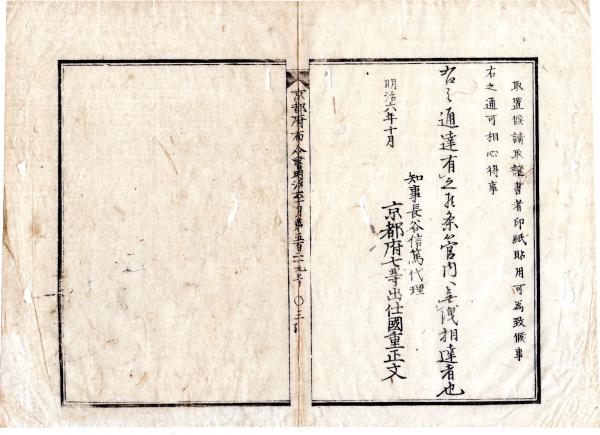 取置候請取證書者印紙貼用可為致候事
右之通可相心得事
右之通達有之候条管内へ無洩相達者也
明治六年十月
知事長谷信篤代理
京都府七等出仕國重正文
京都府布令書明治六年十月第五百二十九号 〇三